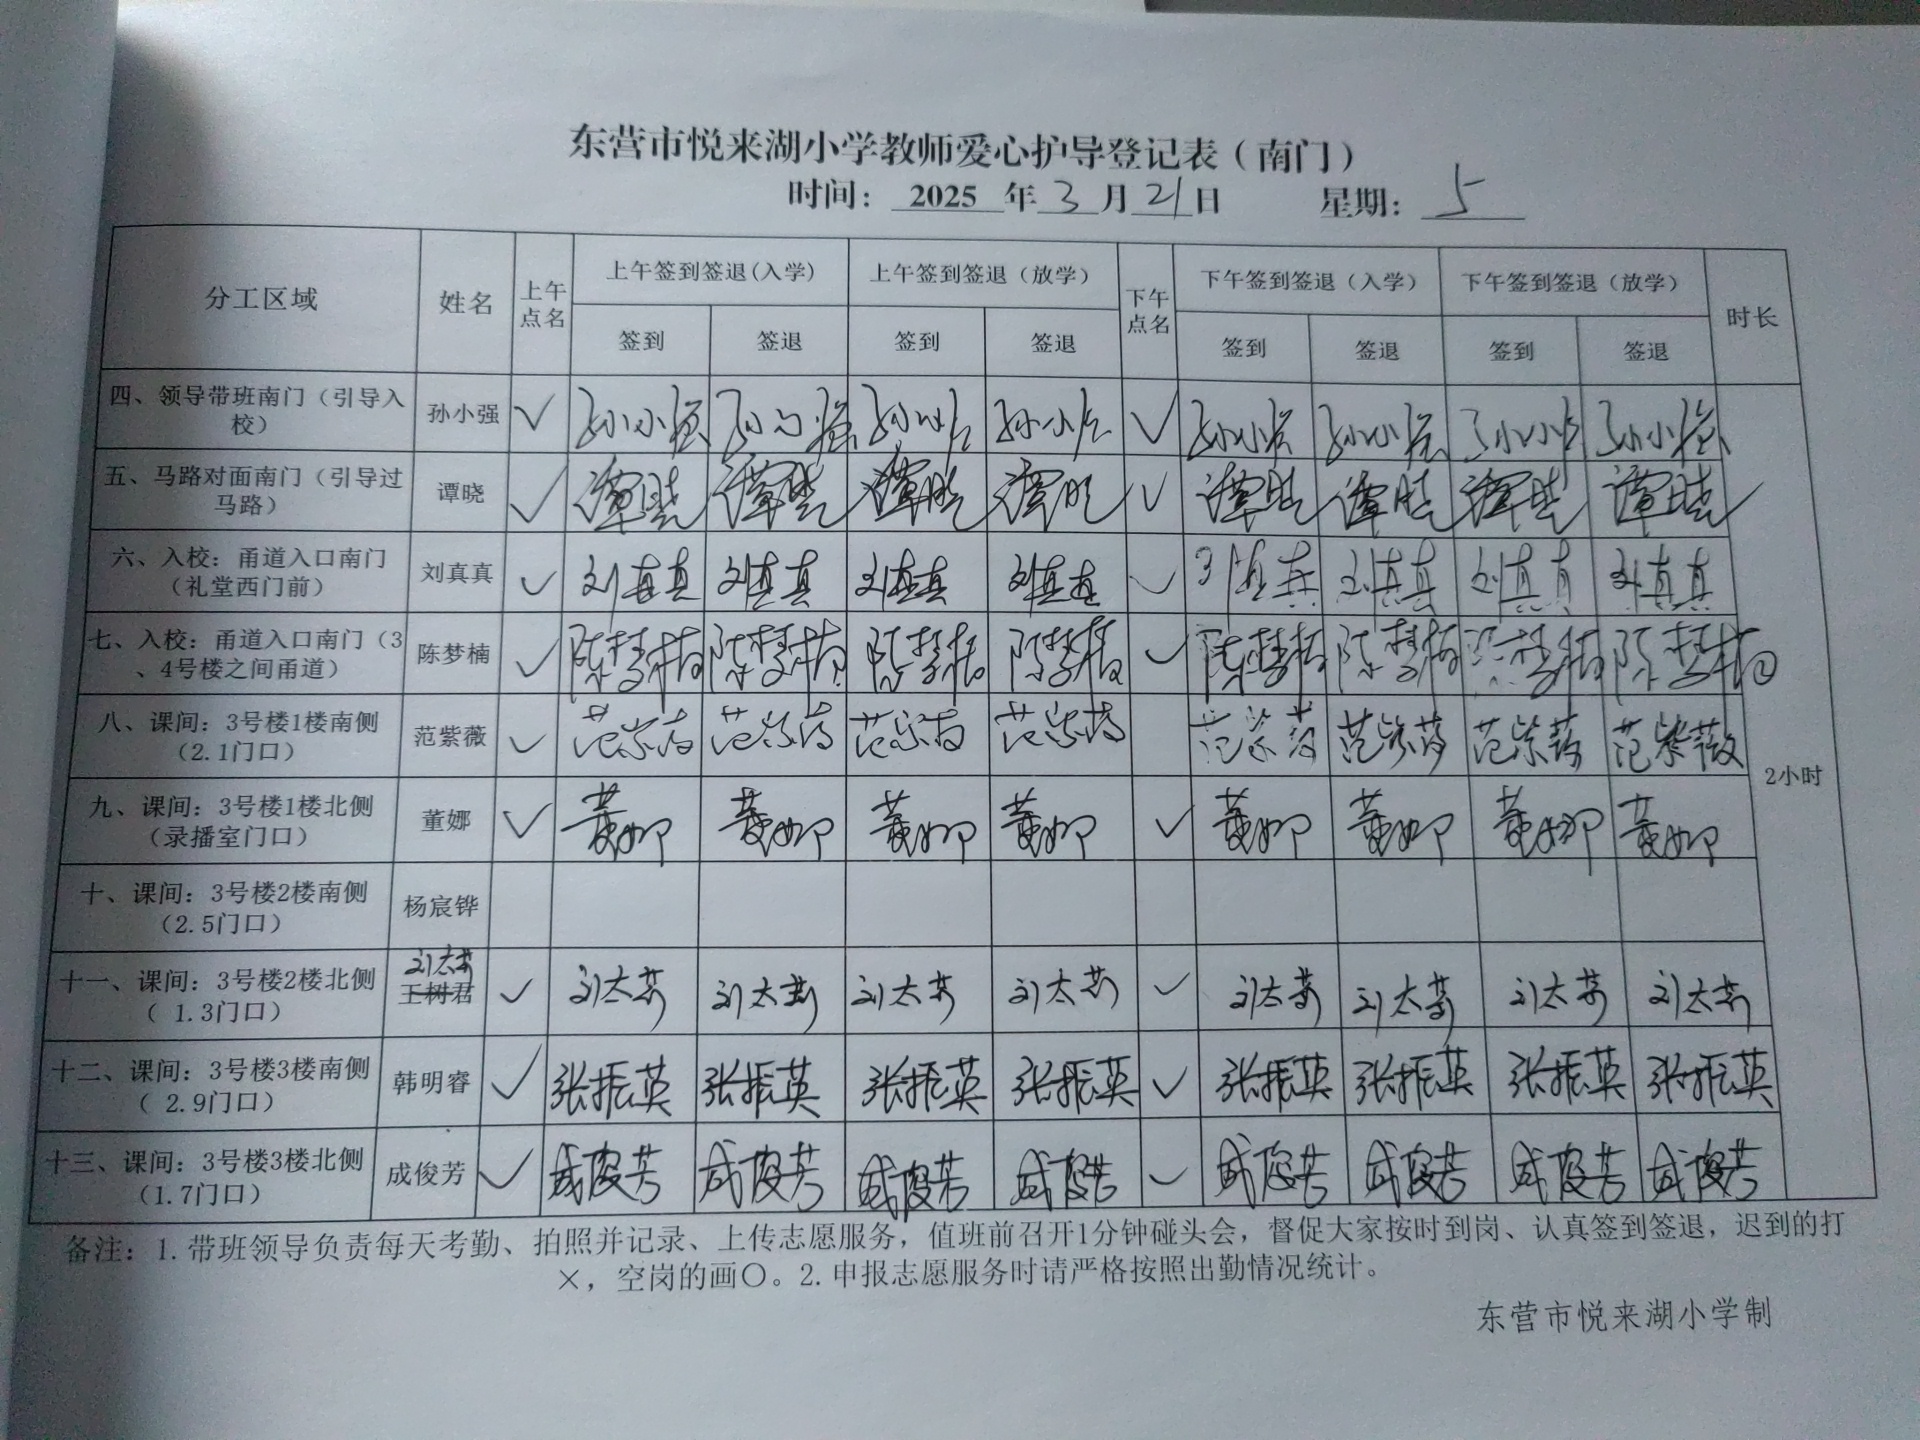 东营市悦来湖小学教师爱心护导登记表（南门）
时间：2025年3月21日 星期：5
分工区域 姓名 上午点名 上午签到签退(入学) 上午签到签退（放学） 下午点名 下午签到签退（入学） 下午签到签退（放学） 时长
签到 签退 签到 签退 签到 签退 签到 签退
四、领导带班南门（引导入校） 孙小强 ✓ 孙小强 孙小强 孙小强 孙小强 ✓ 孙小强 孙小强 孙小强 孙小强
五、马路对面南门（引导过马路） 谭晓 ✓ 谭晓 谭晓 谭晓 谭晓 ✓ 谭晓 谭晓 谭晓 谭晓
六、入校：甬道入口南门（礼堂西门前） 刘真真 ✓ 刘真真 刘真真 刘真真 刘真真 ✓ 刘真真 刘真真 刘真真 刘真真
七、入校：甬道入口南门（3、4号楼之间甬道） 陈梦楠 ✓ 陈梦楠 陈梦楠 陈梦楠 陈梦楠 ✓ 陈梦楠 陈梦楠 陈梦楠 陈梦楠
八、课间：3号楼1楼南侧（2.1门口） 范紫薇 ✓ 范紫薇 范紫薇 范紫薇 范紫薇 范紫薇 范紫薇 范紫薇 范紫薇
2小时
九、课间：3号楼1楼北侧（录播室门口） 董娜 ✓ 董娜 董娜 董娜 董娜 ✓ 董娜 董娜 董娜 董娜
十、课间：3号楼2楼南侧（2.5门口） 杨宸铧
十一、课间：3号楼2楼北侧（ 1.3门口） 王树君 ✓ ✓
十二、课间：3号楼3楼南侧（ 2.9门口） 韩明睿 ✓ 张振英 张振英 张振英 张振英 ✓ 张振英 张振英 张振英 张振英
十三、课间：3号楼3楼北侧（1.7门口） 成俊芳 ✓ 成俊芳 成俊芳 成俊芳 成俊芳 ✓ 成俊芳 成俊芳 成俊芳 成俊芳
备注：1.带班领导负责每天考勤、拍照并记录、上传志愿服务，值班前召开1分钟碰头会，督促大家按时到岗、认真签到签退，迟到的打
×，空岗的画〇。2.申报志愿服务时请严格按照出勤情况统计。
东营市悦来湖小学制